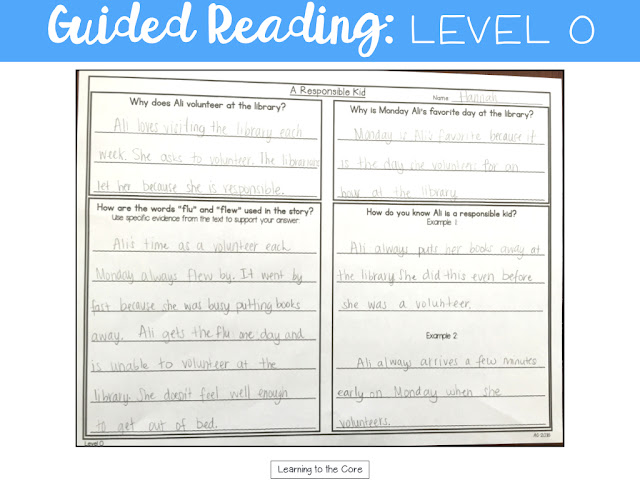 Guided Reading: LEVEL O
A Responsible Kid
Name Hannah
Why does Ali volunteer at the library?
Ali loves visiting the library each
week. She asks to volunteer. The librarians
let her because she is responsible.
Why is Monday Ali's favorite day at the library?
Monday is Ali's favorite because it
is the day she volunteers for an
hour at the library.
How are the words "flu" and "flew" used in the story?
Use specific evidence from the text to support your answer.
Ali's time as a volunteer each
Monday always flew by. It went by
fast because she was busy putting books
away. Ali gets the flu one day and
is unable to volunteer at the
library. She doesn't feel well enough
to get out of bed.
How do you know Ali is a responsible kid?
Example 1
Ali always puts her books away at
the library. She did this even before
she was a volunteer.
Example 2
Ali alway arrives a few minutes
early on Monday when she
volunteers.
Level O
Learning to the Core